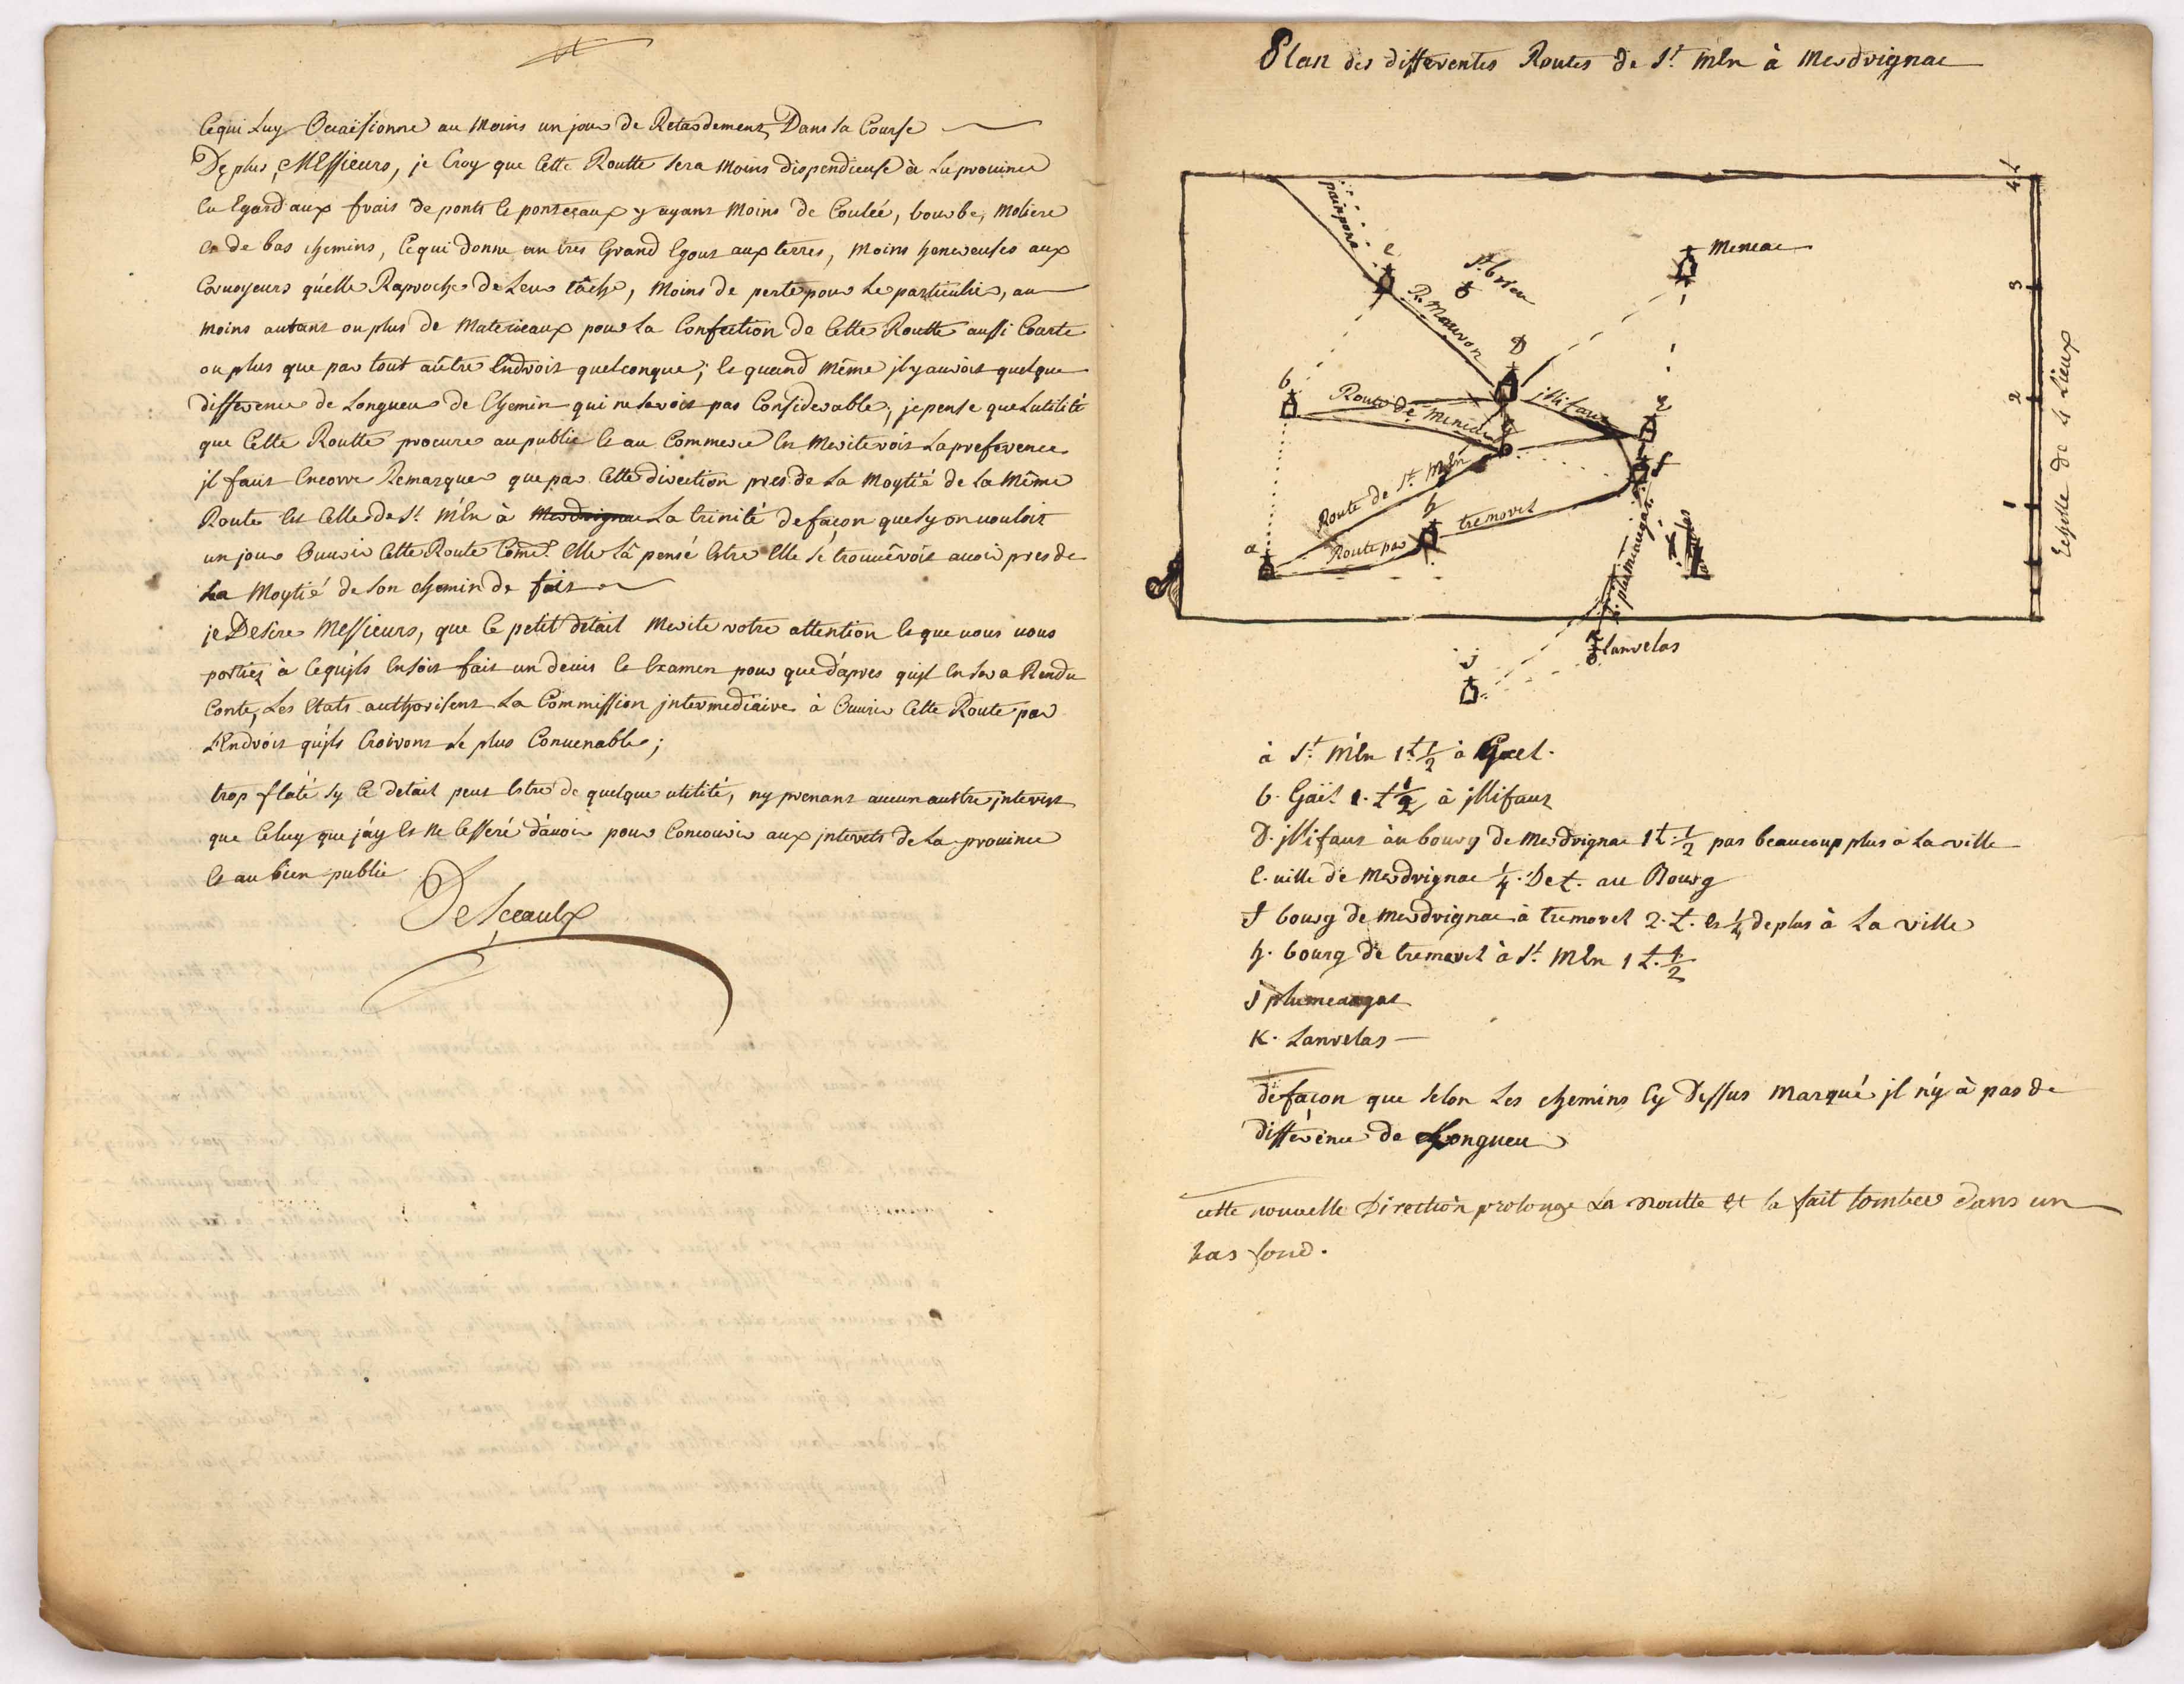 Ce qui Luy Occaisionne au moins un jour de Retardement Dans sa Course
De plus, Messieurs, je Croy que Cette Routte sera moins dispendieuse à La province
Eu Egard aux frais de ponts et ponteceaux y ayant moins de Coulée, bourbe, moliere
et de bas chemins, Ce qui donne un tres Grand Egout aux terres, moins honereuses aux
Corvoyeurs qu'elle Raproche de Leur tâche, moins de perte pour Le particulier, au
moins autant ou plus de materieaux pour La Confection de Cette Routte aussi Courte
ou plus que par tout aûtre Endroit quelconque; et quand même jl y auroit quelque
differrence de Longueur de Chemin qui ne seroit pas Considerable, je pense que Lutilité
que Cette Routte procure au public et au Commerce En meriteroit La preference
jl faut Encorre Remarquer que par Cette direction pres de La Moytié de La Même
Route Est Celle de St. Mén à Merdrignac La trinité de façon que sy on vouloit
un jour Ouvrir Cette Route Comme Elle La pensé Estre Elle se trouvêroit avoir pres de
La Moytié de son chemin de fait
je Desire Messieurs, que Ce petit détail Merite votre attention et que vous vous
portiez à Ce qu'jls En soit fait un devis et Examen pour que d'apres qu'jl En sera Rendu
Conte, Les Etats authorisent La Commission jntermediaire à Ouvrir Cette Route par
L'Endroit qu'jls Croiront Le plus Convenable;
trop flaté sy Ce detail peut Estre de quelque utilité, ny prenant aucun austre jnterest
que Celuy que j'ay Et Ne Cesseré d'avoir pour Concourir aux jnterets de La province
Et au bien public
DesCeaulx
Plan des differentes Routes de St. Mén à Merdrignac
4 L
painpont
c
St brieu
Meneac
R. Mauron
3
D
b
Route de Meneac
jllifaut
e
2
g
f
Route de St. Mén
h
tremorel
a
Route par
R. plumaugat
1
Echelle de 4 Lieux
Lanrelas
j
K
à St. Mén 1 L 1/2 à Gael.
b. Gaël 1. L 1/2 à jllifaut
D. jllifaut au bourg de Merdrignac 1 L. 1/2 pas beaucoup plus à La ville
e. ville de Merdrignac 1/4. De L. au Bourg
f bourg de Merdrignac à tremorel 2. L. et 1/4 de plus à La ville
h. bourg de tremorel à St. Mén 1 L. 1/2
j plumeaugat
K. Lanrelas
de façon que selon Les chemins Cy Dessus marqué jl n'y à pas de
differénce de Longueur
cette nouvelle Direction prolonge La Routte et la fait tomber dans un
bas fond.